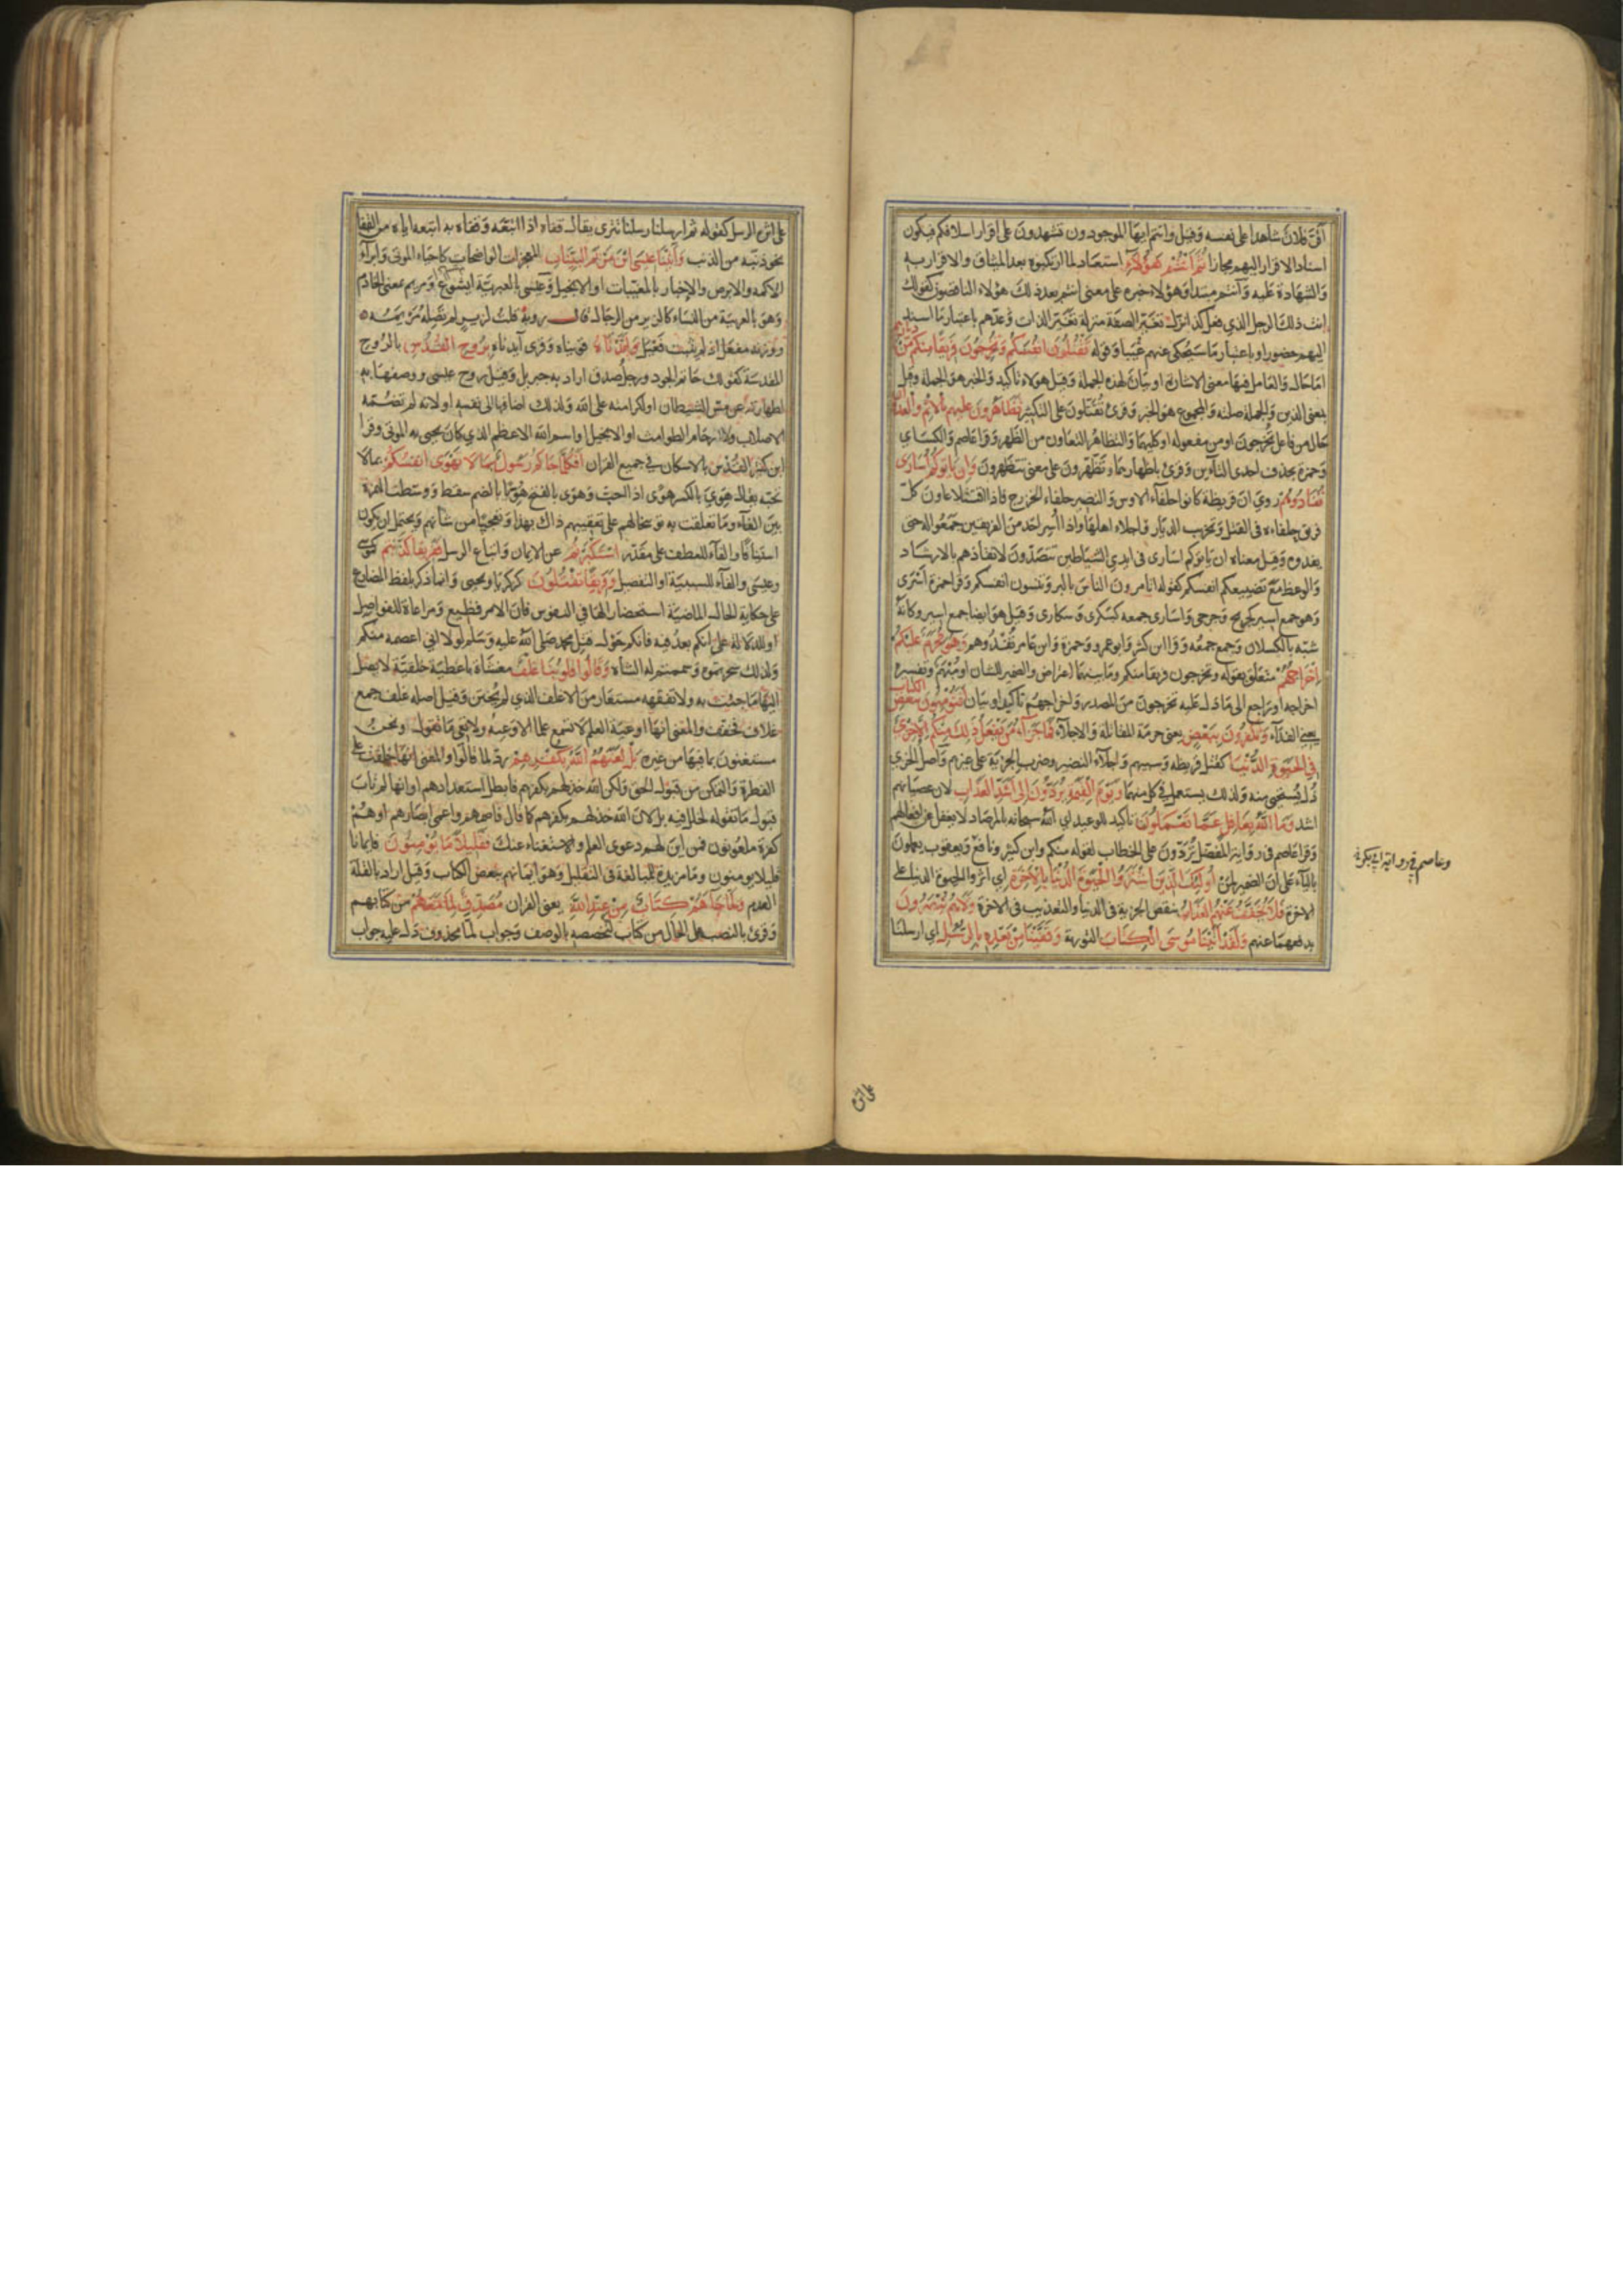 اقرّ فلان شاهدا على نفسه وقيل وانتم ايها الموجودون تشهدون على اقرار اسلافكم فيكون
اسناد الاقرار اليهم مجازا ثُمَّ أَنْتُمْ هَؤُلَاءِ استبعاد لما ارتكبوه بعد الميثاق والاقرار به
والشهادة عليه وانتم مبتدا وهؤلاء خبره على معنى انتم بعد ذلك هؤلاء الناقضون كقولك
انت ذلك الرجل الذي فعل كذا نزّل تغيّر الصفة منزلة تغيّر الذات وعدّهم باعتبار ما اسند
اليهم حضورا وباعتبار ما سيحكى عنهم غيبا وقوله تَقْتُلُونَ انفُسَكُمْ وَتُخْرِجُونَ فَرِيقًا مِنْكُمْ مِنْ ديارهم
اما حال والعامل فيها معنى الاشارة او بيان لهذه الجملة وقيل هؤلاء تاكيد والخبر هو الجملة وقيل
بمعنى الذين والجملة صلته والمجموع هو الخبر وقرئ تُقَتِّلون على التكثير تَظَاهَرُونَ عليهم بِالاثم والعدوان
حال من فاعل تُخرجون او من مفعوله او كليهما والتظاهر التعاون من الظهر وقرا عاصم والكسائي
وحمزة بحذف احدى التاءين وقرئ باظهارهما وتَظَّهَّرون على معنى تتظهرون وَإِن يَاتُوكُمْ أُسَارَى
تُفَادُوهُمْ روي ان قريظة كانوا حلفاء الاوس والنضير حلفاء الخزرج فاذا اقتتلا عاون كلّ
فريق حلفاءه في القتل وتخريب الديار واجلاء اهلها واذا أُسر احد من الفريقين جمعوا له حتى
يفدوه وقيل معناه ان ياتوكم اسارى في ايدي الشياطين تتصدّون لانقاذهم بالارشاد
والوعظ مع تضييعكم انفسكم كقوله اتامرون الناس بالبر وتنسون انفسكم وقرا حمزة أَسْرى
وهو جمع اسير كجريح وجرحى واسارى جمعه كسكرى وسكارى وقيل هو ايضا جمع اسير وكانه
شبّه بالكسلان وجمع جمعه وقرا ابن كثير وابو عمرو وحمزة وابن عامر تَفْدُوهم وَهُوَ مُحَرَّمٌ عَلَيْكُمْ
إِخْرَاجُهُمْ متعلق بقوله وتخرجون فريقا منكم وما بينهما اعتراض والضمير للشان او مبهم وتفسيره
اخراجهم او راجع الى ما دل عليه تخرجون من المصدر واخراجهم تاكيد او بيان أَفَتُؤْمِنُونَ بِبَعْضِ الكتاب
يعني الفداء وَتَكْفُرُونَ بِبَعْضٍ يعني حرمة المقاتلة والاجلاء فَمَا جَزَاءُ مَنْ يَفْعَلُ ذَلِكَ مِنْكُمْ إِلَّا خِزْيٌ
فِي الْحَيوةِ الدُّنْيَا كقتل قريظة وسبيهم واجلاء النضير وضرب الجزية على غيرهم واصل الخزي
ذل يُستحيى منه ولذلك يستعمل في كل منهما وَيَوْمَ الْقِيمَةِ يُرَدُّونَ إِلَى أَشَدِّ الْعَذَابِ لان عصيانهم
اشد وَمَا اللَّهُ بِغَافِلٍ عَمَّا تَعْمَلُونَ تاكيد للوعيد اي الله سبحانه بالمرصاد لا يغفل عن افعالهم
وقرا عاصم في رواية المفضل تُرَدُّون على الخطاب لقوله منكم وابن كثير ونافع ويعقوب يعملون
بالياء على ان الضمير لمن أُولَئِكَ الَّذِينَ اشْتَرَوُا الْحَيوةَ الدُّنْيَا بِالْآخِرَةِ اي آثروا الحيوة الدنيا على
الاخرة فَلَا يُخَفَّفُ عَنْهُمُ الْعَذَابُ بنقض الجزية في الدنيا والتعذيب في الاخرة وَلَا هُمْ يُنْصَرُونَ
بدفعهما عنهم وَلَقَدْ آتَيْنَا مُوسَى الْكِتَابَ التورية وَقَفَّيْنَا مِنْ بَعْدِهِ بِالرُّسُلِ اي ارسلنا
وعاصم في رواية ابي بكر
على اثره
على اثره الرسل كقوله ثم ارسلنا رسلنا تترى يقال قفاه اذا اتبعه وقفاه به اتبعه اياه من القفا
نحو ذنبه من الذنب وَآتَيْنَا عِيسَى ابْنَ مَرْيَمَ الْبَيِّنَاتِ المعجزات الواضحات كاحياء الموتى وابراء
الاكمه والابرص والاخبار بالمغيبات او الانجيل وعيسى بالعبرية ايشوع ومريم بمعنى الخادم
وهو بالعربية من النساء كالزير من الرجال قال رؤبة قلت لزير لم تصله مريمه
ووزنه مفعل اذ لم يثبت فعيل وَأَيَّدْنَاهُ قويناه وقرئ آيدناه بِرُوحِ الْقُدُسِ بالروح
المقدسة كقولك حاتم الجود ورجل صدق اراد به جبريل وقيل روح عيسى ووصفها به
لطهارته عن مس الشيطان او لكرامته على الله ولذلك اضافها الى نفسه او لانه لم تضمه
الاصلاب ولا ارحام الطوامث او الانجيل او اسم الله الاعظم الذي كان يحيى به الموتى وقرا
ابن كثير القُدْس بالاسكان في جميع القران أَفَكُلَّمَا جَاءَكُمْ رَسُولٌ بِمَا لَا تَهْوَى أَنْفُسُكُمُ بما لا
تحبه يقال هَوِيَ بالكسر هوًى اذا احب وهوى بالفتح هُويّا بالضم سقط ووسطت الهمزة
بين الفاء وما تعلقت به توبيخا لهم على تعقيبهم ذاك بهذا وتعجيبا من شانهم ويحتمل ان يكون
استينافا والفاء للعطف على مقدر اسْتَكْبَرْتُمْ عن الايمان واتباع الرسل فَفَرِيقًا كَذَّبْتُمْ كموسى
وعيسى والفاء للسببية او التفصيل وَفَرِيقًا تَقْتُلُونَ كزكريا ويحيى وانما ذكر بلفظ المضارع
على حكاية الحال الماضية استحضارا لها في النفوس فان الامر فظيع ومراعاة للفواصل
او للدلالة على انكم بعد فيه فانكم حول قتل محمد صلى الله عليه وسلم لولا اني اعصمه منكم
ولذلك سحرتموه وسممتم له الشاة وَقَالُوا قُلُوبُنَا غُلْفٌ مغشاة باغطية خلقية لا يصل
اليها ما جئت به ولا تفقهه مستعار من الاغلف الذي لم يختن وقيل اصله غلف جمع
غلاف فخفف والمعنى انها اوعية العلم لا تسمع علما الا وعته ولا تعي ما تقول او نحن
مستغنون بما فيها من غيره بَلْ لَعَنَهُمُ اللَّهُ بِكُفْرِهِمْ رد لما قالوا والمعنى انها خلقت على
الفطرة والتمكن من قبول الحق ولكن الله خذلهم بكفرهم فابطل استعدادهم او انها لم تاب
قبول ما تقوله لخلل فيه بل لان الله خذلهم بكفرهم كما قال فاصمهم واعمى ابصارهم او هم
كفرة ملعونون فمن اين لهم دعوى العلم والاستغناء عنك فَقَلِيلًا مَا يُؤْمِنُونَ فايمانا
قليلا يومنون وما مزيدة للمبالغة في التقليل وهو ايمانهم ببعض الكتاب وقيل اراد بالقلة
العدم وَلَمَّا جَاءَهُمْ كِتَابٌ مِنْ عِنْدِ اللَّهِ يعني القران مُصَدِّقٌ لِمَا مَعَهُمْ من كتابهم
وقرئ بالنصب على الحال من كتاب لتخصصه بالوصف وجواب لما محذوف دل عليه جواب